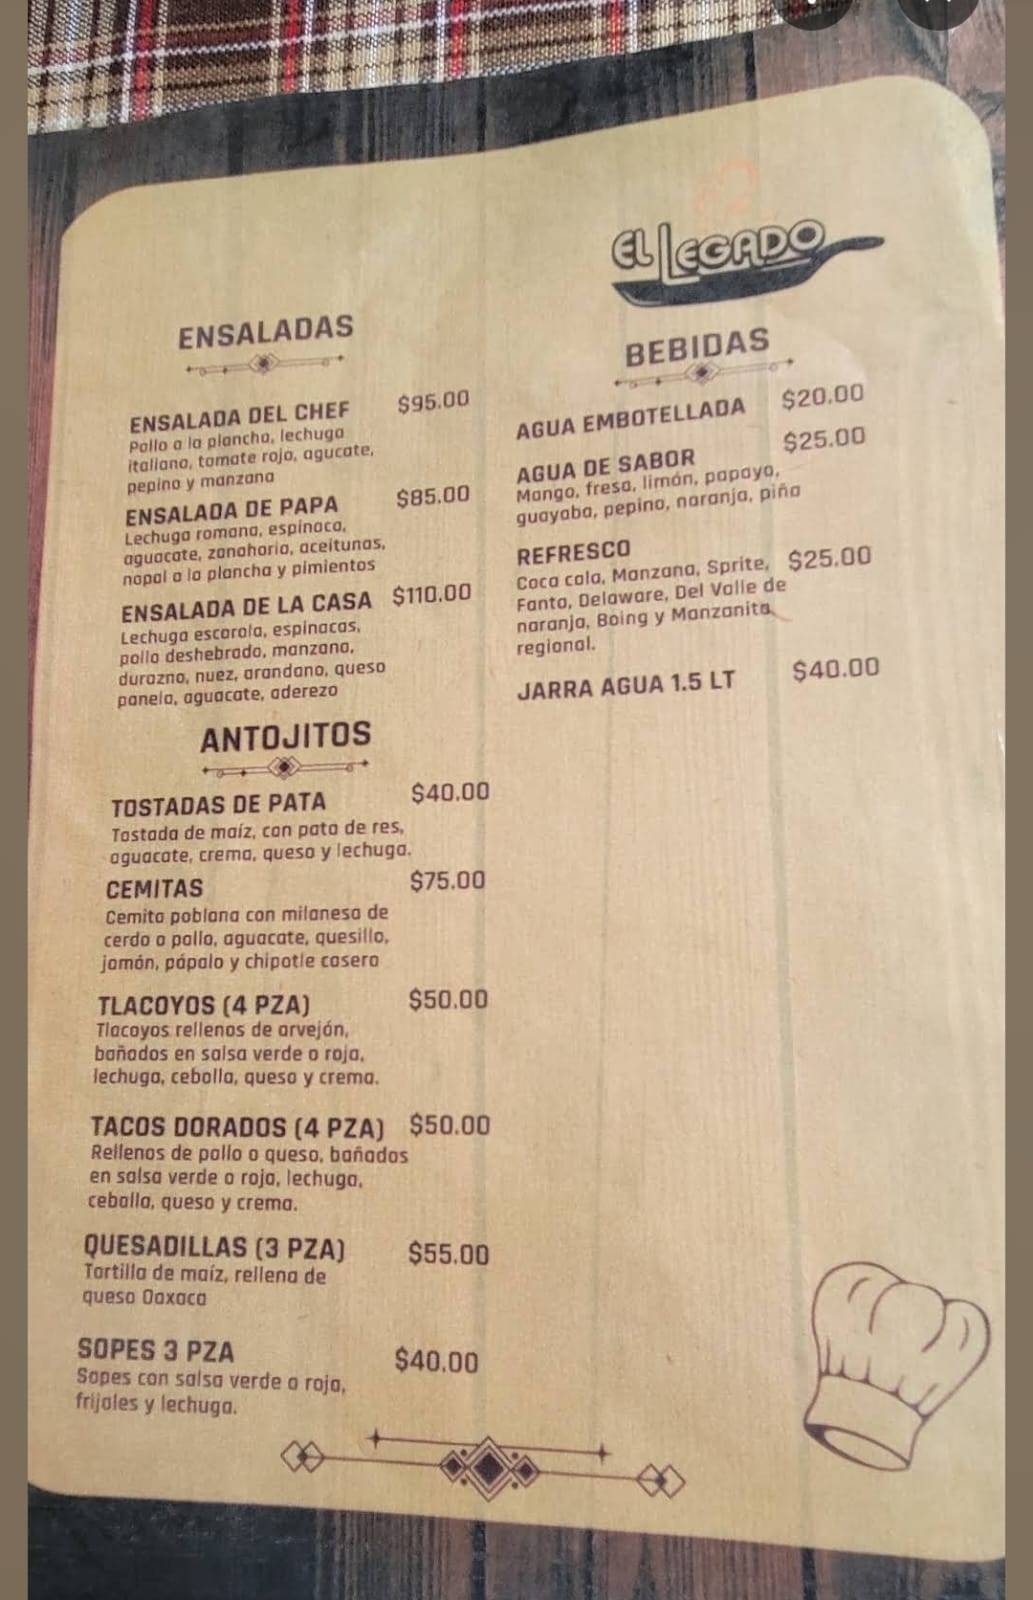 EL LEGADO
ENSALADAS
ENSALADA DEL CHEF $95.00
Pollo a la plancha, lechuga
italiana, tomate rojo, agucate,
pepino y manzana
ENSALADA DE PAPA $85.00
Lechuga romana, espinaca,
aguacate, zanahoria, aceitunas,
nopal a la plancha y pimientos
ENSALADA DE LA CASA $110.00
Lechuga escarola, espinacas,
pollo deshebrado, manzana,
durazno, nuez, arandano, queso
panela, aguacate, aderezo
ANTOJITOS
TOSTADAS DE PATA $40.00
Tostada de maíz, con pata de res,
aguacate, crema, queso y lechuga.
CEMITAS $75.00
Cemita poblana con milanesa de
cerdo o pollo, aguacate, quesillo,
jamón, pápalo y chipotle casero
TLACOYOS (4 PZA) $50.00
Tlacoyos rellenos de arvejón,
bañados en salsa verde o roja,
lechuga, cebolla, queso y crema.
TACOS DORADOS (4 PZA) $50.00
Rellenos de pollo o queso, bañados
en salsa verde o roja, lechuga,
cebolla, queso y crema.
QUESADILLAS (3 PZA) $55.00
Tortilla de maíz, rellena de
queso Oaxaca
SOPES 3 PZA $40.00
Sopes con salsa verde o roja,
frijoles y lechuga.
BEBIDAS
AGUA EMBOTELLADA $20.00
AGUA DE SABOR $25.00
Mango, fresa, limón, papaya,
guayaba, pepino, naranja, piña
REFRESCO
Coca cola, Manzana, Sprite, $25.00
Fanta, Delaware, Del Valle de
naranja, Boing y Manzanita
regional.
JARRA AGUA 1.5 LT $40.00